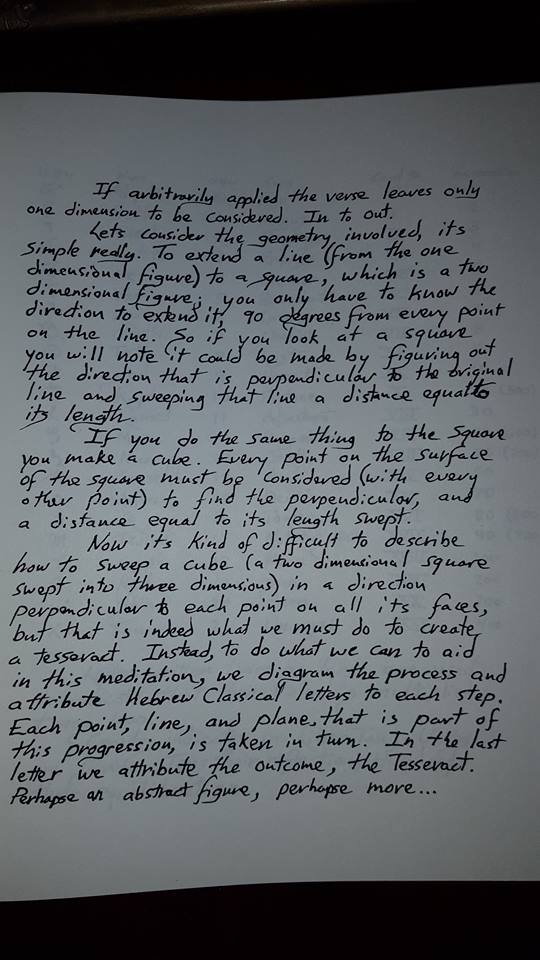 If arbitrarily applied the verse leaves only
one dimension to be considered. In to out.
Lets consider the geometry involved, its
simple really. To extend a line (from the one
dimensional figure) to a square, which is a two
dimensional figure, you only have to know the
direction to extend it, 90 degrees from every point
on the line. So if you look at a square
you will note it could be made by figuring out
the direction that is perpendicular to the original
line and sweeping that line a distance equal to
its length.
If you do the same thing to the square
you make a cube. Every point on the surface
of the square must be considered (with every
other point) to find the perpendicular, and
a distance equal to its length swept.
Now its kind of difficult to describe
how to sweep a cube (a two dimensional square
swept into three dimensions) in a direction
perpendicular to each point on all its faces,
but that is indeed what we must do to create
a tesseract. Instead, to do what we can to aid
in this meditation, we diagram the process and
attribute Hebrew Classical letters to each step.
Each point, line, and plane, that is part of
this progression, is taken in turn. In the last
letter we attribute the outcome, the Tesseract.
Perhapse an abstract figure, perhapse more...